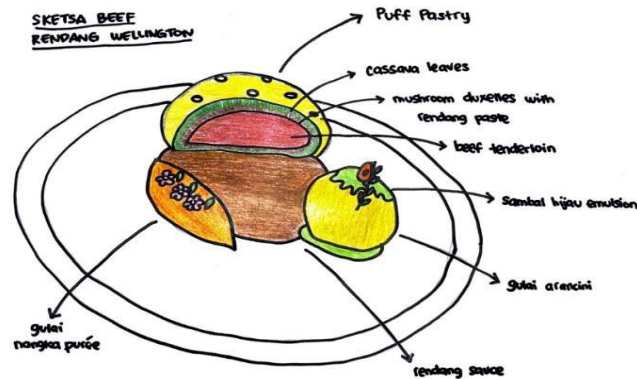 SKETSA BEEF
RENDANG WELLINGTON
Puff Pastry
cassava leaves
mushroom duxelles with
rendang paste
beef tenderloin
sambal hijau emulsion
gulai arancini
gulai
nangka purée
rendang sauce